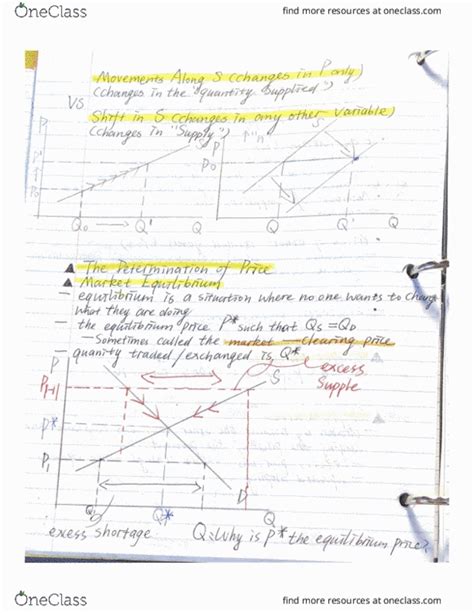 OneClass
find more resources at oneclass.com
Movements Along S (changes in P only)
(changes in the "quantity supplied")
VS
Shift in S (changes in any other variable)
(changes in "Supply")
P
S
P
S
P0
Q0 → Q' Q
Q' Q
▲ The Determination of Price
▲ Market Equilibrium
- equilibrium is a situation where no one wants to change
what they are doing
- the equilibrium price P* such that Qs = QD
- Sometimes called the market - clearing price
- quanity traded/exchanged is Q*
P
S
excess
Supple
P*
P1
D
Q*
Q
exess shortage
Q: Why is P* the equilibrium price?
OneClass
find more resources at oneclass.com